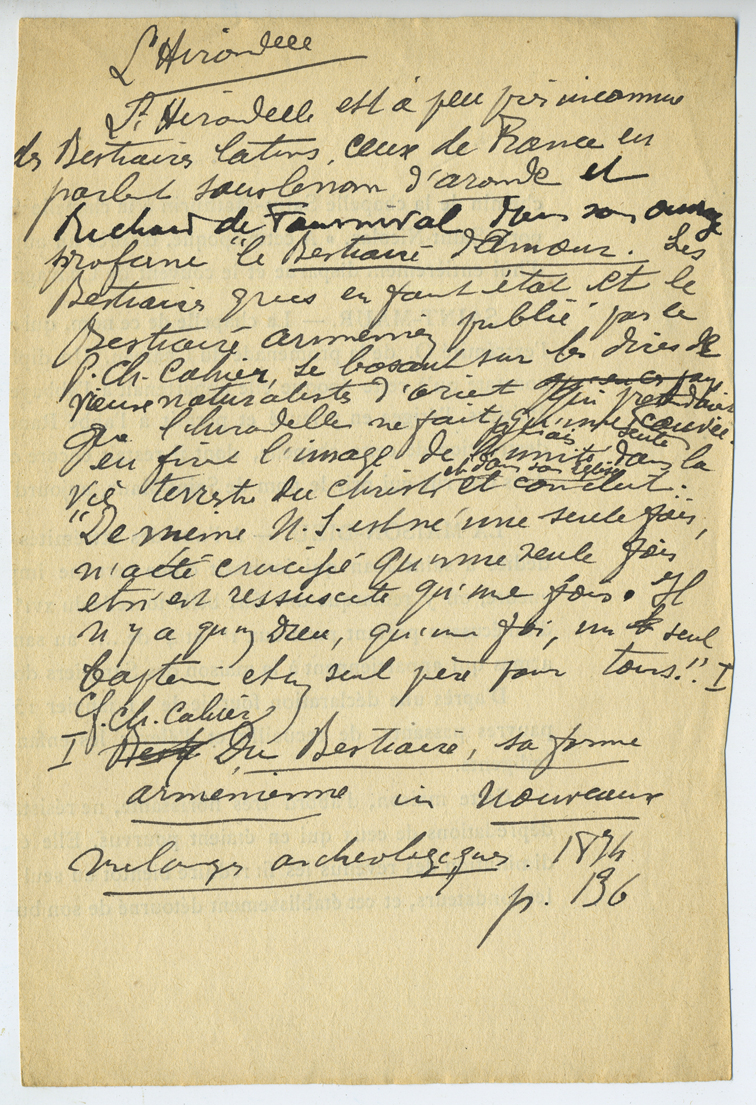 L'Hirondelle
L'Hirondelle est à peu près inconnue
des Bestiaires latins, ceux de France en
parlent sous le nom d'aronde et
Richard de Fournival dans son ouvrage
profane "le Bestiaire d'Amour. Les
Bestiaires grecs en font état et le
Bestiaire arménien publié par le
P. Ch. Cahier, se basant sur les dires de
vieux naturalistes d'orient qui prétendaient
que l'hirondelle ne fait qu'une seule couvée.
en fait l'image de l'unité dans la
vie terrestre du Christ et dans son église et conclut :
"De même N. S. est né une seule fois,
n'a été crucifié qu'une seule fois
et n'est ressuscité qu'une fois. Il
n'y a qu'un Dieu, qu'une foi, un seul
baptême et un seul père pour tous." I
Cf. Ch. Cahier
I Du Bestiaire, sa forme
arménienne in Nouveaux
mélanges archéologiques. 1874
p. 136